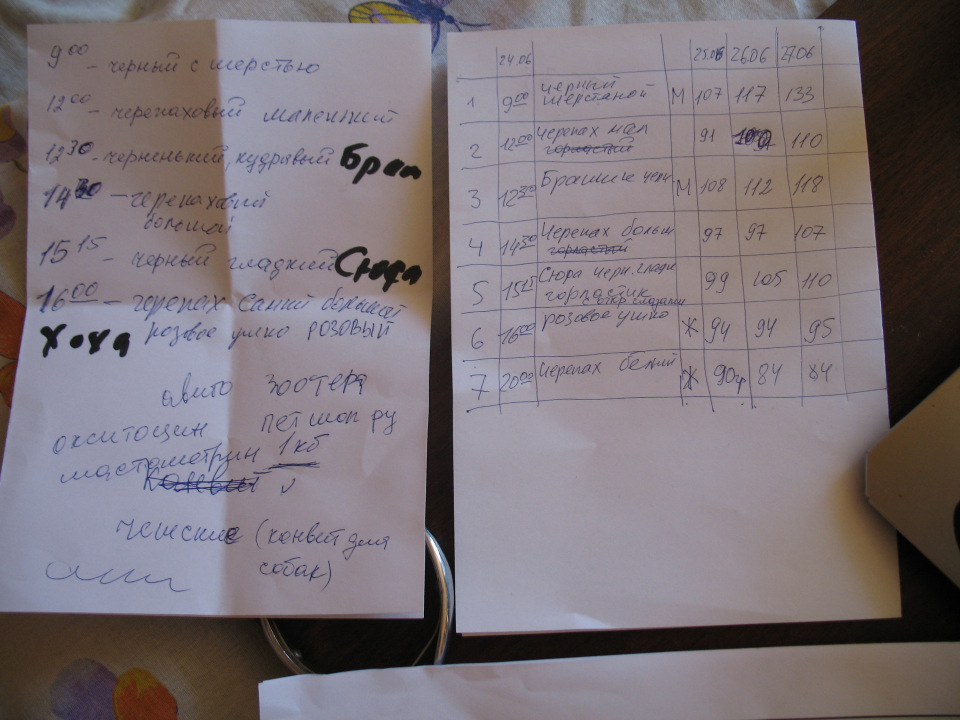 9 00 – черный с шерстью
12 00 – черепаховый маленький
12 30 – черненький, кудрявый Браш
14 30 – черепаховий
большой
15 15 – черный гладкий Сюра
16 00 – черепах Самый большой
Хоха розовое ушко розовый
авито зоотера
окситоцин петшоп ру
мастометрин 1 кб
чешские (конвит для
собак)
24.06 25.06 26.06 27.06
1 9 00 черный шерстяной М 107 117 133
2 12 00 Черепах мал 91 110
3 12 30 Брашиче черн М 108 112 118
4 14 30 Черепах больш 97 97 107
5 15 15 Сюра черн. гладк 99 105 110
горластик
откр глазами
6 16 00 розовое ушко Ж 94 94 95
7 20 00 Черепах белый Ж 90гр 84 84